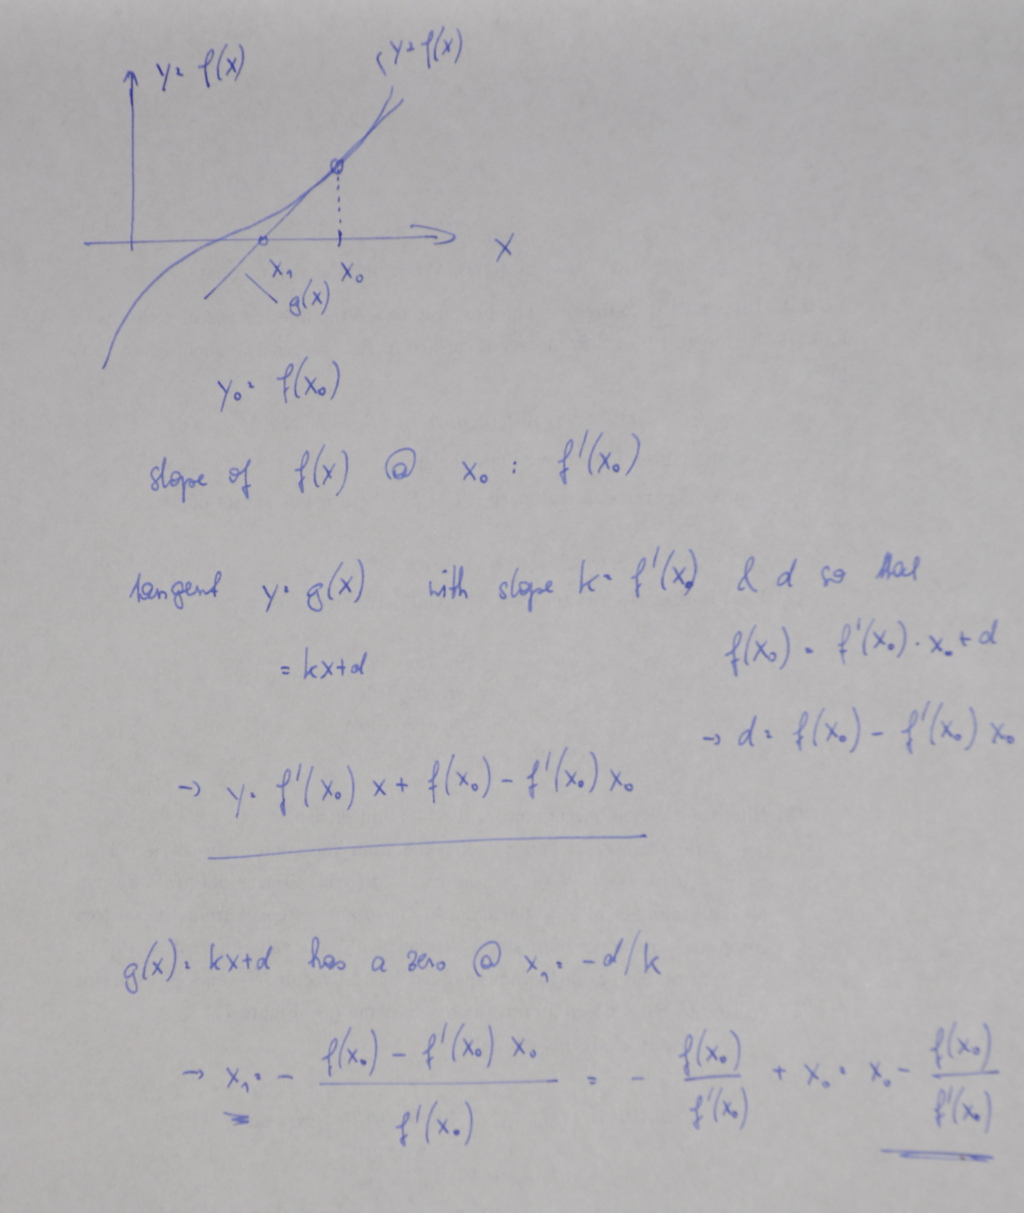 y = f(x)
y = f(x)
x
x₁ x₀
g(x)
y₀ = f(x₀)
slope of f(x) @ x₀ : f'(x₀)
tangent y = g(x) with slope k = f'(x₀) & d so that
f(x₀) = f'(x₀) · x₀ + d
= kx+d
→ d = f(x₀) - f'(x₀) x₀
→ y = f'(x₀) x + f(x₀) - f'(x₀) x₀
g(x) = kx+d has a zero @ x₁ = -d/k
→ x₁ = - (f(x₀) - f'(x₀) x₀) / f'(x₀) = - f(x₀)/f'(x₀) + x₀ = x₀ - f(x₀)/f'(x₀)